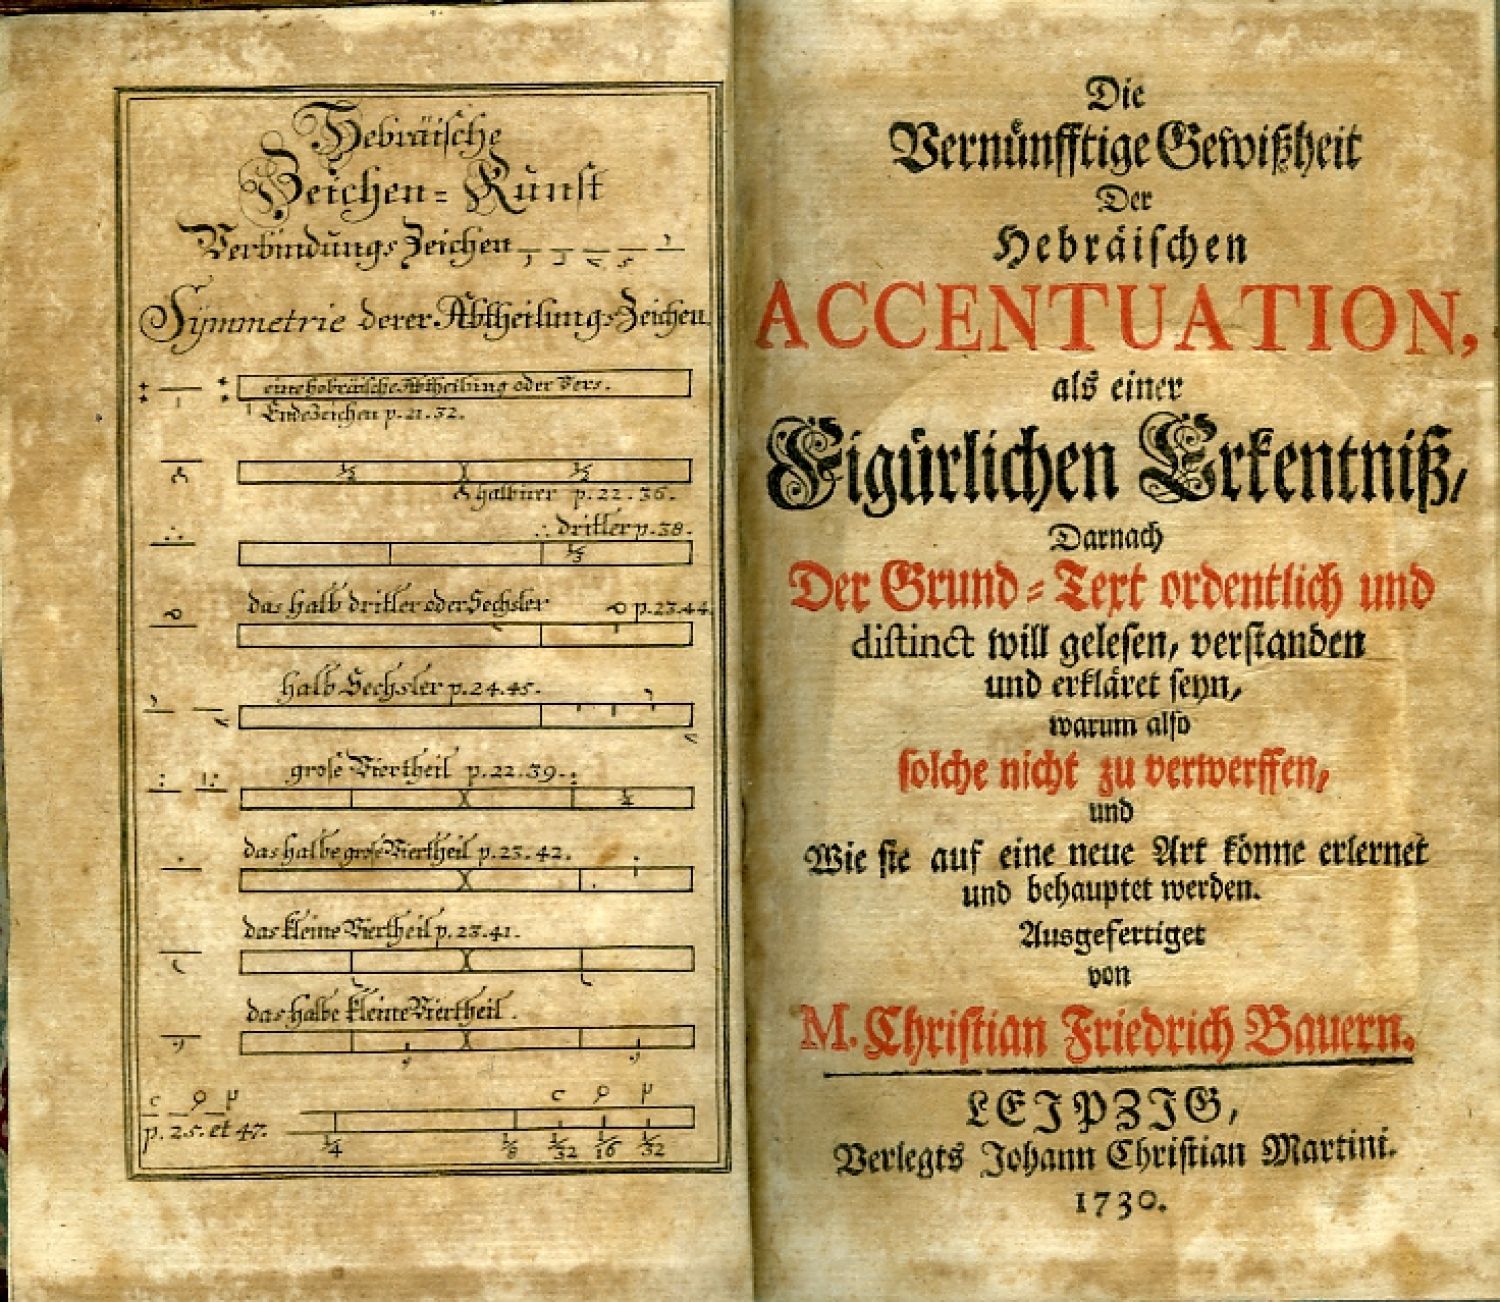 Hebräische
Zeichen=Kunst
Verbindungs Zeichen
Symmetrie derer Abtheilungs Zeichen.
eine hebräische Abtheilung oder Vers.
Endezeichen p. 21. 32.
1/2 1/2
halbirer p. 22. 36.
dritler p. 38.
1/3
das halb dritler oder Sechsler p. 23. 44.
halb Sechsler p. 24. 45.
große Viertheil p. 22. 39.
1/4
das halbe große Viertheil p. 23. 42.
das kleine Viertheil p. 23. 41.
das halbe kleine Viertheil.
p. 25. et 47.
1/4 1/8 1/32 1/16 1/32
Die
Vernünfftige Gewißheit
Der
Hebräischen
ACCENTUATION,
als einer
Figürlichen Erkentniß,
Darnach
Der Grund=Text ordentlich und
distinct will gelesen, verstanden
und erkläret seyn,
warum also
solche nicht zu verwerffen,
und
Wie sie auf eine neue Art könne erlernet
und behauptet werden.
Ausgefertiget
von
M. Christian Friedrich Bauern.
LEJPZJG,
Verlegts Johann Christian Martini.
1730.